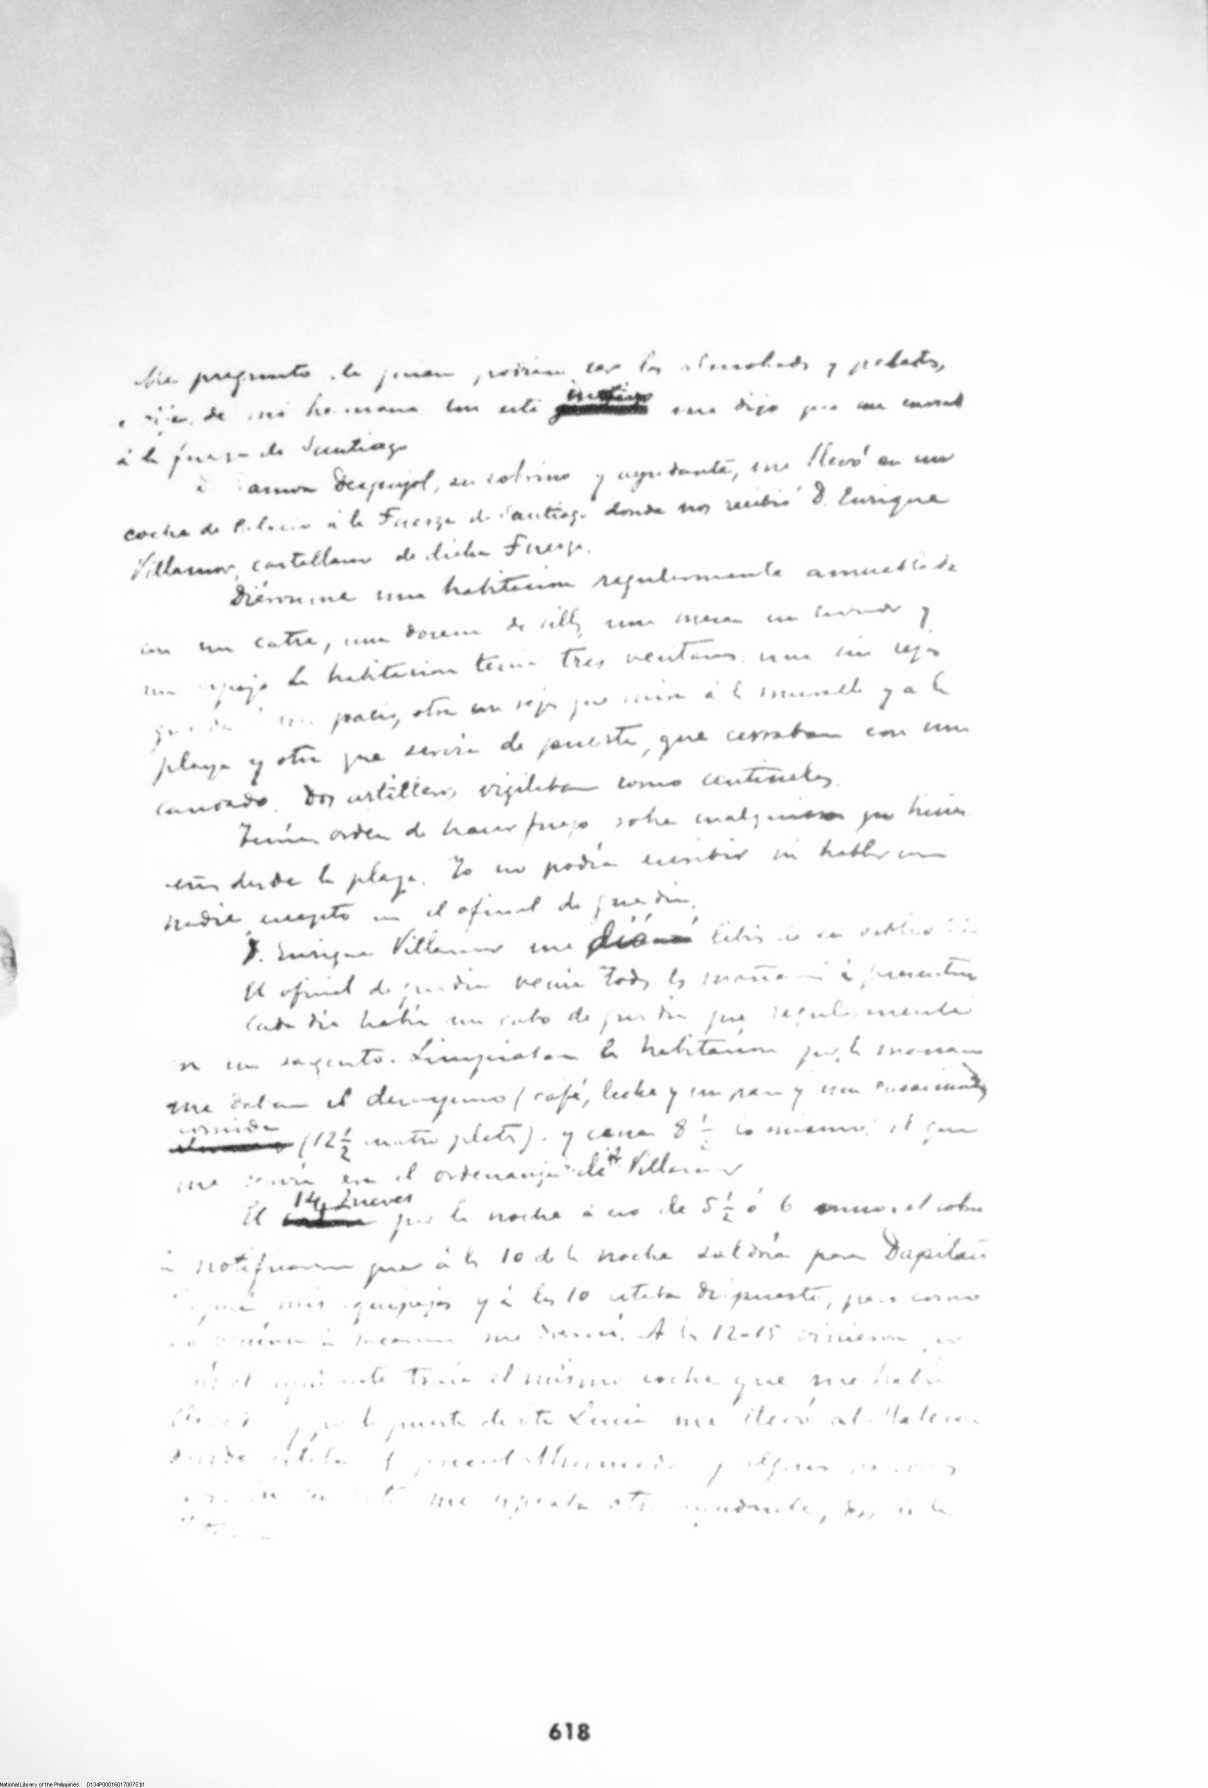 Me preguntó de quien podrian ser las almohadas y petates,
de mi hermana. Con este motivo me dijo que me enviará
á la fuerza de Santiago
Ramon Despujol, su sobrino y ayudante, me llevó en un
coche de Palacio á la Fuerza de Santiago donde nos recibió D. Enrique
Villamor, castellano de dicha Fuerza.
Diéronme una habitacion regularmente amueblada
con un catre, una docena de sillas, una mesa, un lavador y
un espejo. La habitacion tenia tres ventanas: una sin rejas
que da á un patio, otra con rejas que mira á la muralla y a la
playa y otra que servia de puerta, que cerraban con un
candado. Dos artilleros vigilaban como centinelas.
Tenían orden de hacer fuego sobre cualquiera que hiciera
señas desde la playa. Yo no podia escribir ni hablar con
nadie excepto con el oficial de guardia.
D. Enrique Villamor me dió libros de su biblioteca
El oficial de guardia venia todas las mañanas á presentar
Cada dia habia un cabo de guardia que regularmente
era un sargento. Limpiaban la habitacion por la manana
me daban el desayuno (café, leche y un pan y una ensaimada)
comida
(12 ½ cuatro platos) y cena 8 ½ lo mismo. el que
me servia era el ordenanza del Sr Villamor
14, Jueves
El por la noche á eso de 5 ½ ó 6 vino el sobrino
á notificarme que á las 10 de la noche saldria para Dapitan
mis equipajes y á las 10 estaba dispuesto, pero como
no venian á sacarme me dormí. A las 12-15 vinieron
el ayudante traia el mismo coche que me habia
y por la puerta de Sta Lucia me llevó al Malecon
donde estaba el general Ahumada y algunas
me esperaba otro ayudante, dos de la
618
National Library of the Philippines